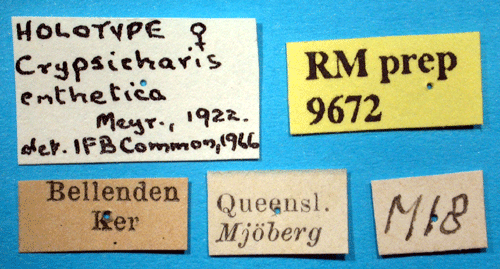 HOLOTYPE ♀
Crypsicharis
enthetica
Meyr., 1922.
det. IFB Common, 1966
RM prep
9672
Bellenden
Ker
Queensl.
Mjöberg
M18